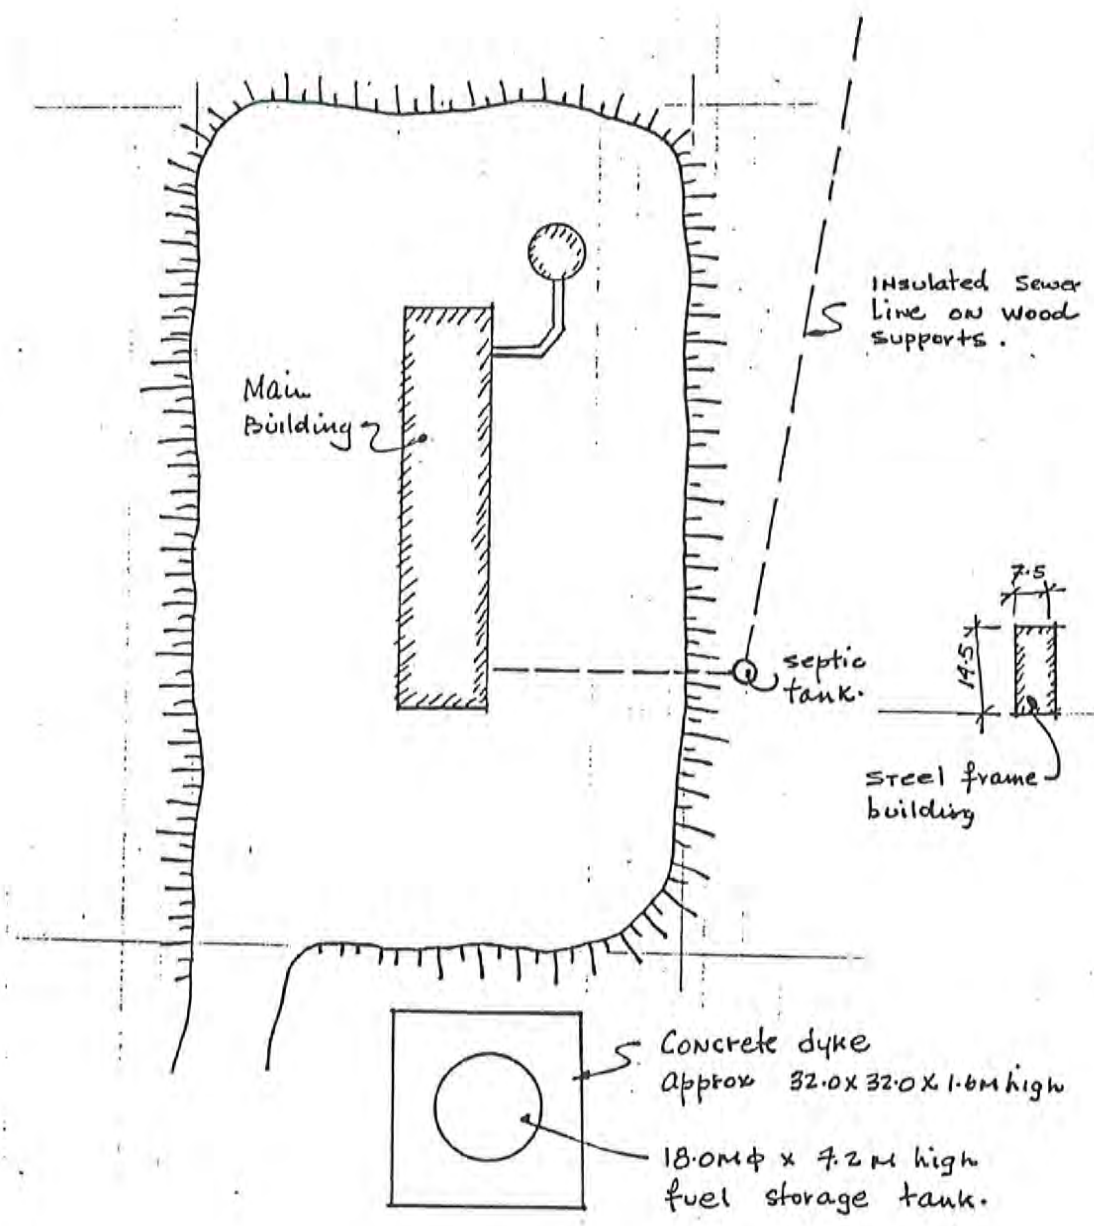 Insulated Sewer
Line on wood
supports.
Main
Building
7.5
14.5
septic
tank.
Steel frame
building
Concrete dyke
approx 32.0 x 32.0 x 1.6M high
18.0Mφ x 7.2M high
fuel storage tank.